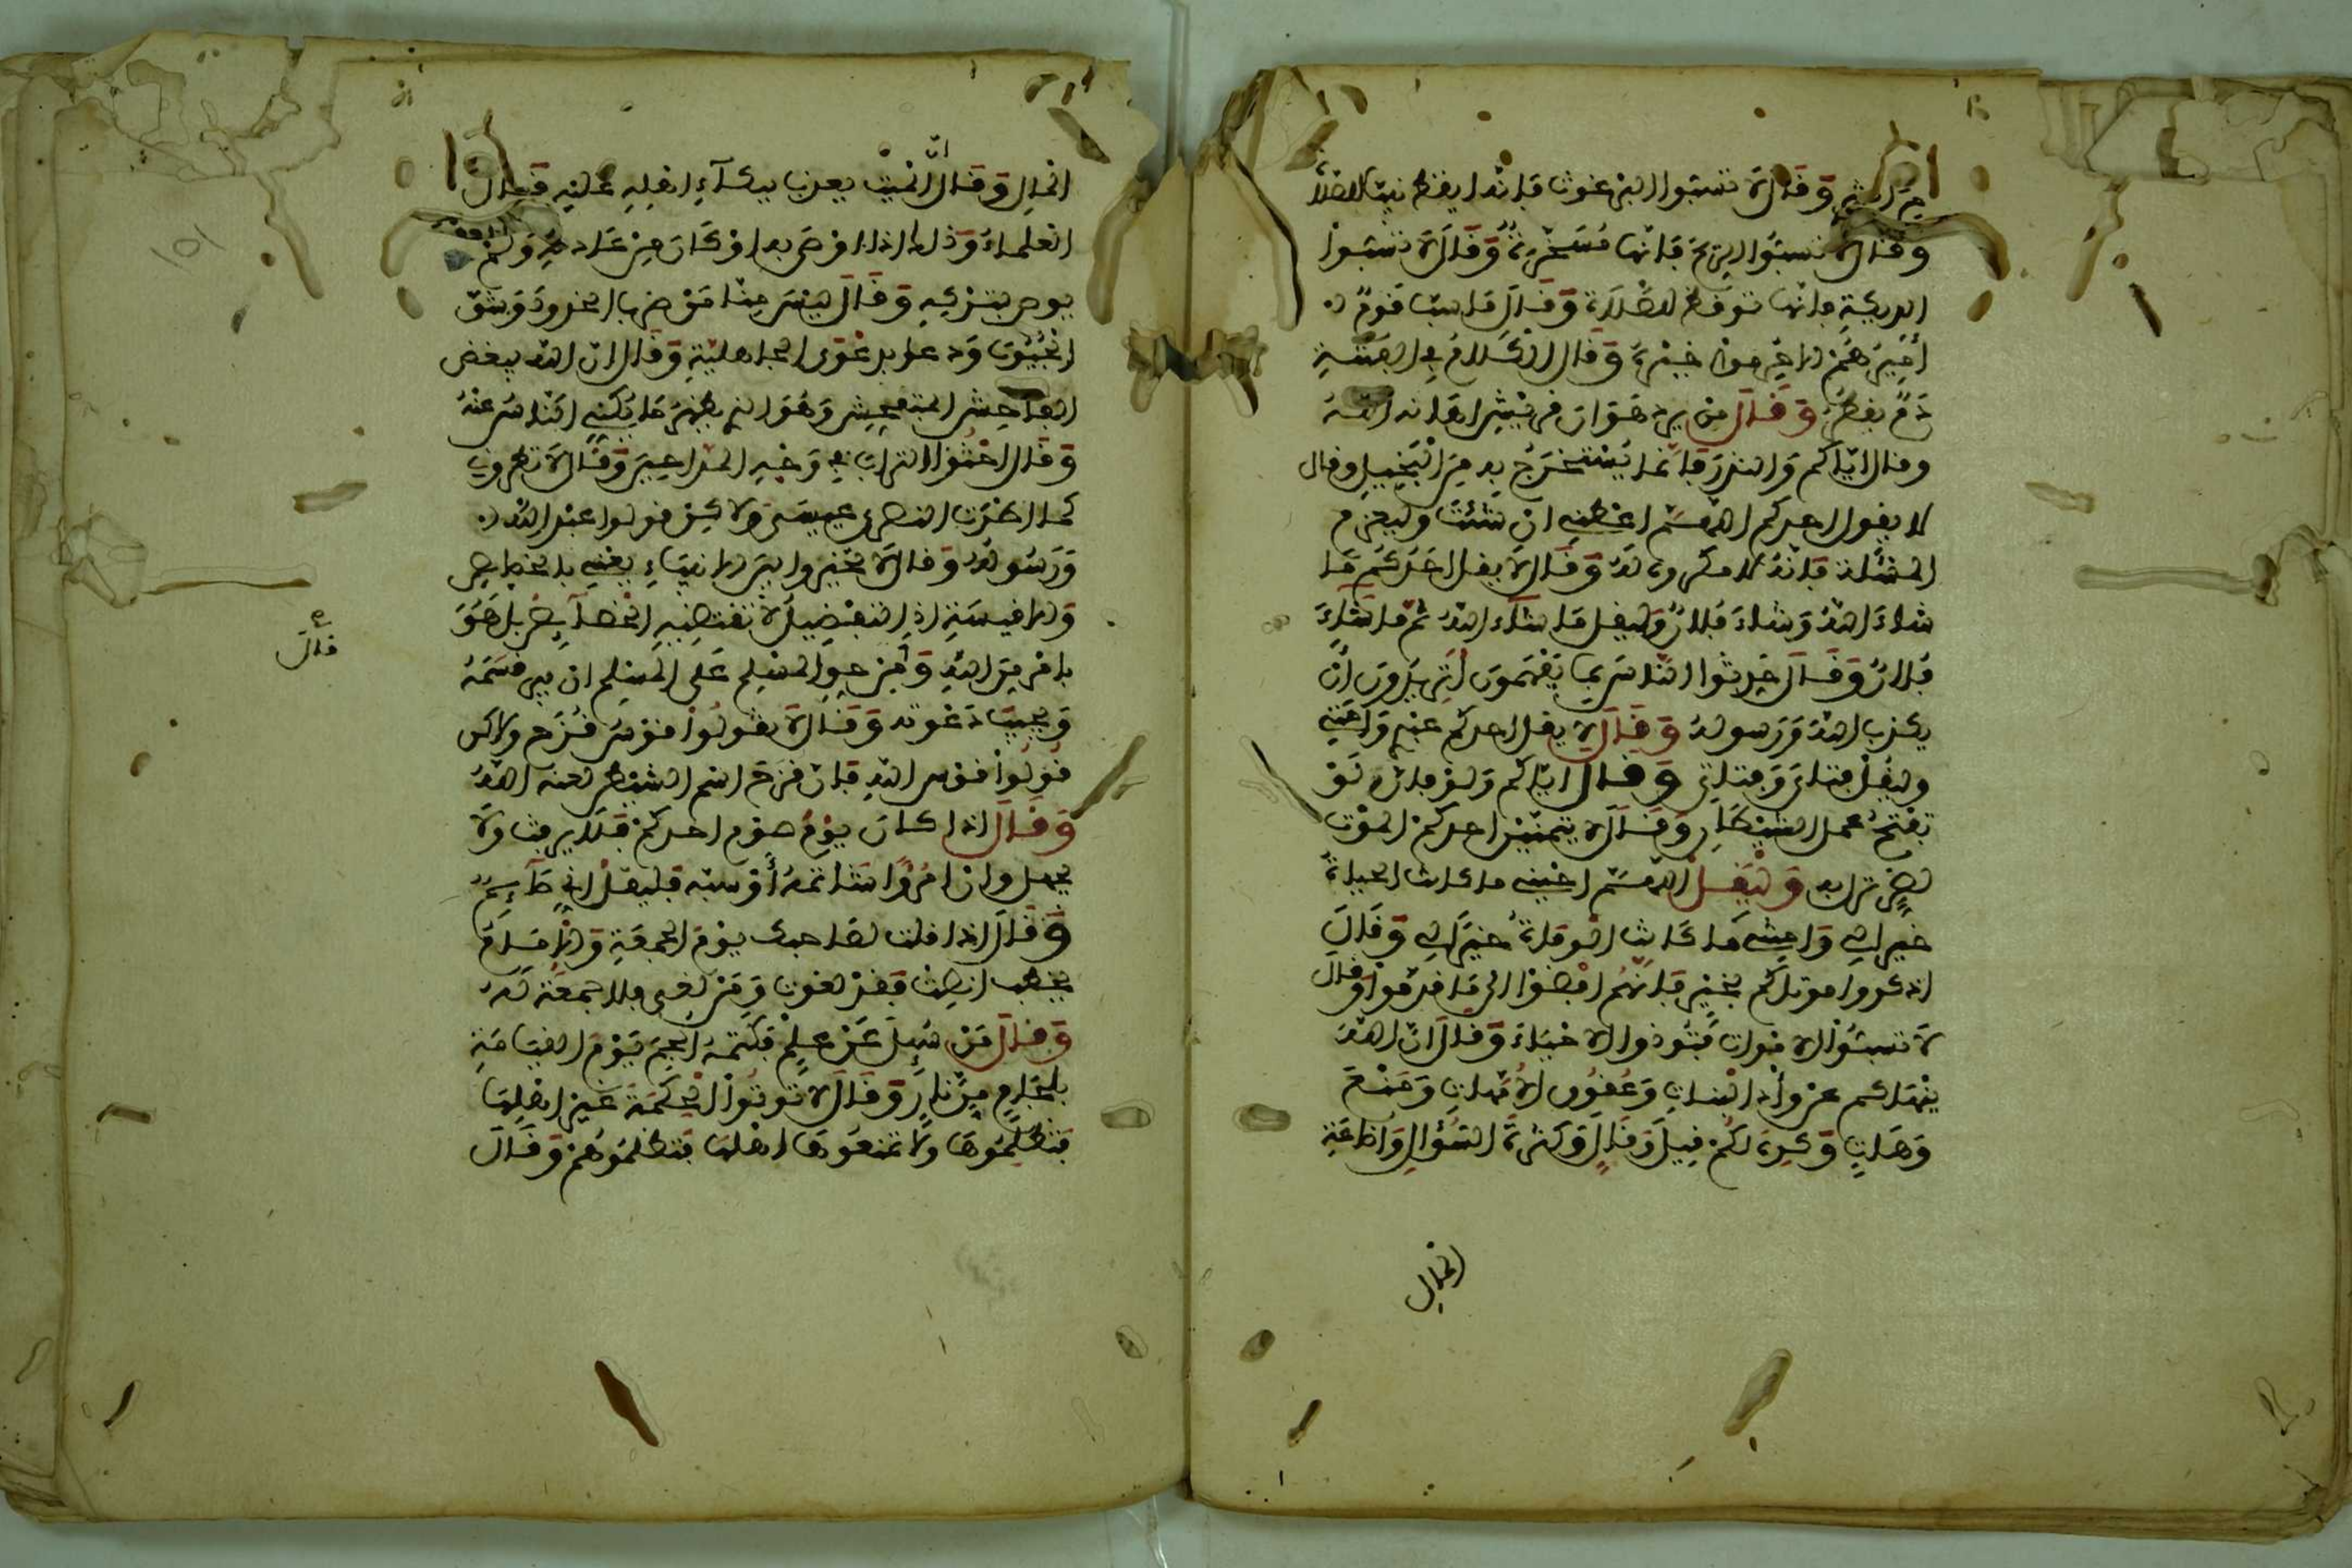 وَقَالَ لاَ تسبّوا البرغوث فإنّه ايقظ نبيّا للصّلاة
وقال لا تسبّوا الريح فإنها مُسَخّرةٌ وَقَالَ لاَ تسبّوا
الديكة فإنها توقظ للصّلاة وَقَالَ مَا سبّ قومٌ
أميرهُم الا حُرموا خيرَهُ وَقَالَ الكلامُ في الفتنة
دمٌ يقطر وَقَالَ من يرد هَوَان قريش اهانه الله
وقال ايّاكم وَالنذر فإنّما يُستخرَجُ به مِنَ البَخِيلِ وقال
لا يقول احدكم اللهمّ اعطني ان شئتَ وليعزم
المسئلة فإنّهُ لا مكره لهُ وَقَالَ لاَ يقل احَدُكُم مَا
شاءَ اللهُ وَشاءَ فُلانٌ وليقل مَا شاءَ اللهُ ثمّ ما شاءَ
فُلانٌ وَقَالَ حَدّثوا النّاس بما يَفهمُونَ أتريدُونَ أن
يكذب اللهُ وَرَسوله وَقَالَ لا يقل احدكم عبدي وَأمتي
وليقُل فتاي وَفتاتي وَقَالَ ايّاكم وَلو فإن لَوْ
تفتحُ عمل الشيطان وَقَالَ لا يتمنّيَن احدكم الموت
لضرّ نزل به وَليَقُل اللهمّ احيني ما كانت الحياةُ
خير لي وَامتني مَا كانت الوفاةُ خيرٌ لي وَقَالَ
اذكروا موتاكم بخير فإنهُم افضوا الى مَا قدّمُوا وقال
لاَ تسبّوا الاموات فتُوذوا الاحيَاءَ وَقَالَ انّ اللهَ
ينهاكم عن وأد البنات وَعُقُوق الأمّهات وَمَنْعَ
وَهَاتِ وَكره لكُم قيلَ وَقَالَ وَكثرةَ السُؤالِ وَإضَاعَةِ
المال
المال وَقَالَ انّ الميّت يعذب ببكآءِ اهلِهِ عَليْهِ فَقَالَ
العلماءُ وَذلك اذا اوصَى به او كَانَ مِنْ عَادتهِ وَلم
يوص بتركِهِ وَقَالَ ليسَ منّا مَنْ ضرب الخدودَ وَشقّ
الجُيُوبَ وَدعا بدَعْوَى الجاهليّةِ وَقَالَ انّ الله يبغض
الفاحِش المتفحِش وَهُوَ الذي يظهرُ مَا يُكَنّي النّاسُ عنْهُ
وَقَالَ احثُوا الترابَ في وَجْهِ المدّاحِينَ وَقَالَ لاَ تطروني
كما اطرت النصرى عيسَى ولاكن قولوا عبد الله
وَرَسُولهُ وَقال لاَ تخيروا بيَن الانبيَاءِ يعني بالخصايص
بامْرٍ مِنَ اللهِ وَمِن حقِ المسْلم عَلَى المسْلِم ان يبر قسَمَهُ
وَيجيبَ دَعْوته وَقَالَ لاَ تقولُوا قوسُ قُزَح ولاكن
قُولُوا قوس اللهِ فَإن قزَح اسم الشيطن لعنه اللهُ
وَقَالَ اذا كانَ يوْمُ صوْم احدكم فَلاَ يرفث ولاَ
يجهل وإن امْرُؤٌا شاتمهُ أوْ سبّه فليقُلْ إنّي صَآئِمٌ
وَقَالَ اذا قلت لصَاحبك يوْمَ الجمعَةِ وَالإمَامُ
يخطب انصتْ فَقدْ لغوت وَمَنْ لغى فلا جمعَة لَهُ
وَقَالَ مَنْ سُئِلَ عَنْ عِلْمٍ فَكتمَهُ الجِمَ يَوْمَ القيَامَةِ
بلجَامٍ مِنْ نارٍ وَقَالَ لاَ تُوتُوا الحِكمَةَ غَيرَ اهْلِهَا
فتظلِمُوهَا وَلاَ تمنعُوهَا اهْلهَا فتظلمُوهُمْ وَقَالَ
قال
١٥١